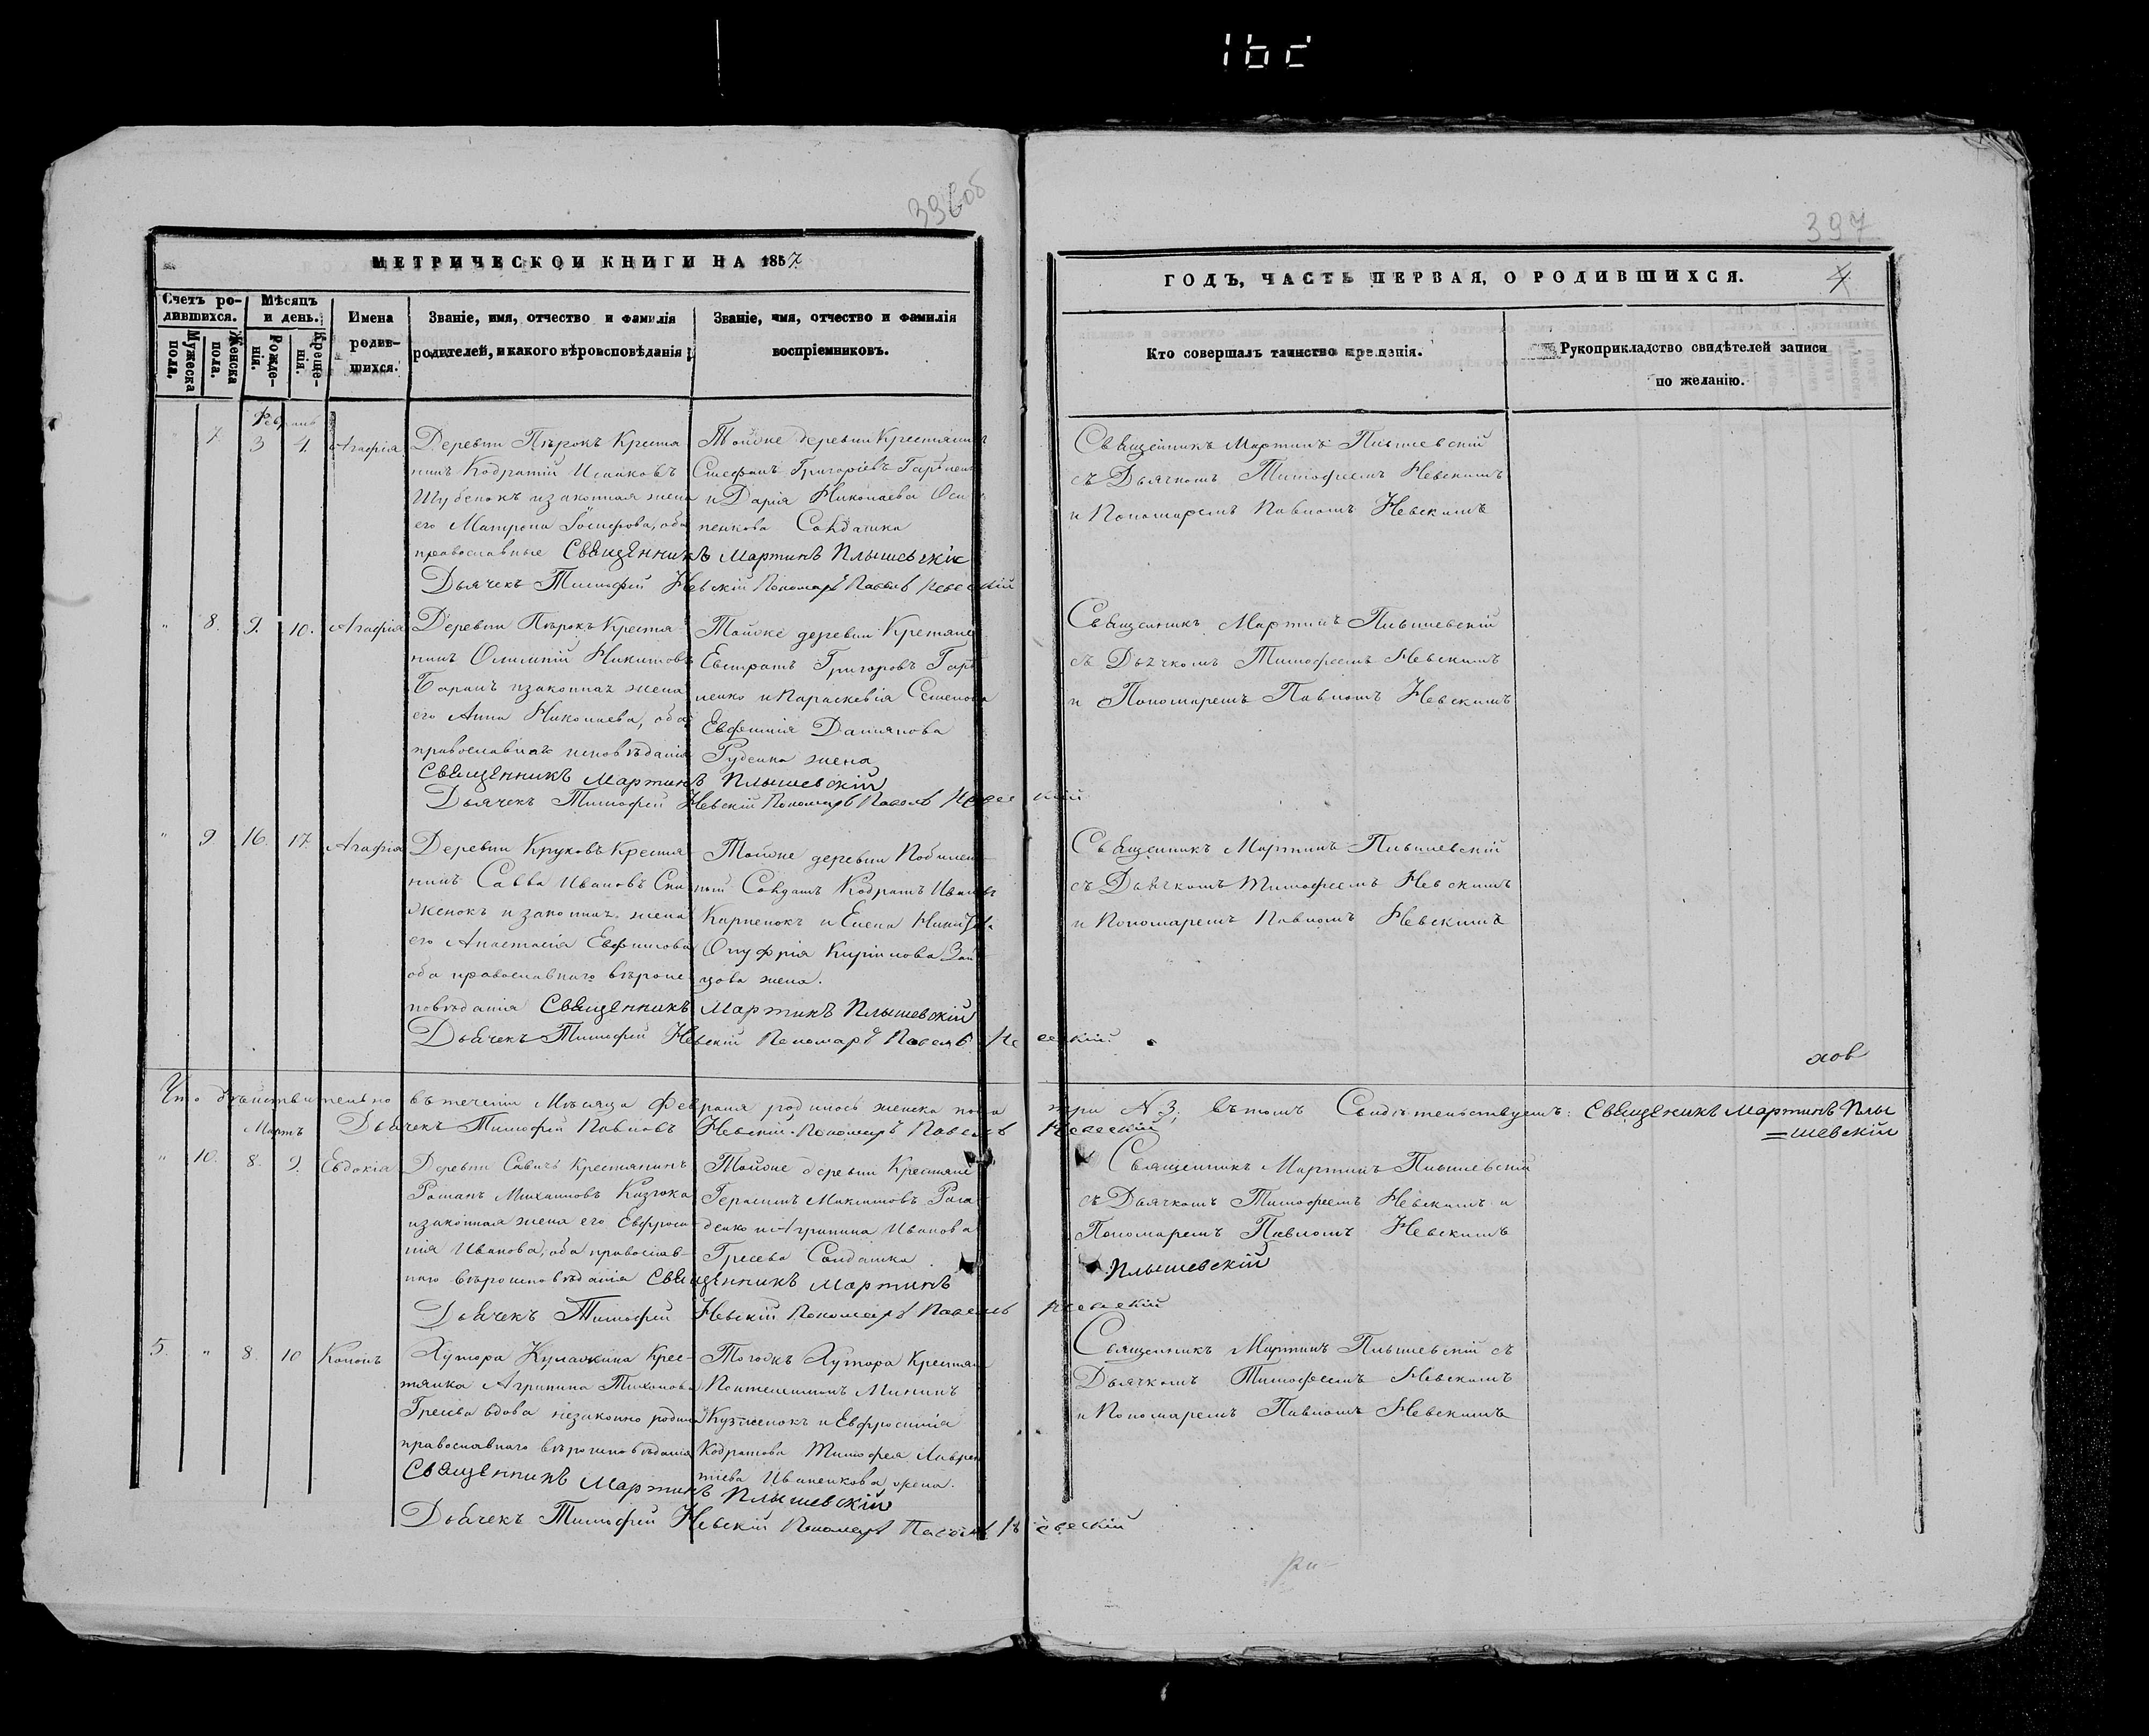 396об
397
МЕТРИЧЕСКОЙ КНИГИ НА 1857
ГОДЪ, ЧАСТЬ ПЕРВАЯ, О РОДИВШИХСЯ.
Счетъ ро-
дившихся.
Мужеска
пола.
Женска
пола.
Мѣсяцъ
и день.
Рожде-
нія.
Креще-
нія.
Имена
родив-
шихся.
Званіе, имя, отчество и фамилія
родителей, и какого вѣроисповѣданія
Званіе, имя, отчество и фамилія
воспріемниковъ.
Кто совершалъ таинство крещенія.
Рукоприкладство свидѣтелей записи
по желанію.
Февраль
7. 3 4. Агафія
Деревни Пѣрокъ Крестья
нинъ Кодратій Исааковъ
Шубенокъ изаконная жена
его Матрона Іосифова, оба
православные Священникъ Мартинъ Плышевскій
Дьячекъ Тимофей Невскій Пономарь Павелъ Невскій
Тойже деревни Крестьянинъ
Стефанъ Григоріевъ
и Дарія Николаева
пенкова Солдатка
Священникъ Мартинъ Плышевскій
съ Дьячкомъ Тимофеемъ Невскимъ
и Пономаремъ Павломъ Невскимъ
" 8. 9. 10. Агафія
Деревни Пѣрокъ Крестья
нинъ Олимпій Никитовъ
Баранъ изаконная жена
его Анна Николаева, оба
православнаго исповѣданія
Священникъ Мартинъ Плышевскій
Дьячекъ Тимофей Невскій Пономарь Павелъ Невскій
Тойже деревни Крестьяне
Евстратъ Григоровъ Гар
ненко и Параскевія Семенова
Евфимія Даміянова
Руденка жена
Священникъ Мартинъ Плышевскій
съ Дьячкомъ Тимофеемъ Невскимъ
и Пономаремъ Павломъ Невскимъ
" 9 16. 17. Агафія
Деревни Круковъ Крестья
нинъ Савва Ивановъ Сни
женокъ и законная жена
его Анастасія Евфимова
оба православнаго вѣроис
повѣданія Священникъ Мартинъ Плышевскій
Дьячекъ Тимофей Невскій Пономарь Павелъ Невскій.
Тойже деревни
ный Солдатъ Кодратъ Ивановъ
Карпенокъ и Елена
Онуфрія Кирилова Зай
цова жена.
Священникъ Мартинъ Плышевскій
съ Дьячкомъ Тимофеемъ Невскимъ
и Пономаремъ Павломъ Невскимъ
Что дѣйствительно въ теченіи Мѣсяца Февраля родилось женска пола три № 3, въ томъ Свидѣтельствуемъ: Священикъ Мартинъ Плы
=шевскій
Дьячекъ Тимофей Павловъ Невскій. Пономарь Павелъ Невскій
Мартъ
" 10. 8. 9. Евдокія
Деревни Савичъ Крестьянинъ
Романъ Михайловъ
изаконная жена его Евфроси
нія Иванова, оба православ-
наго вѣроисповѣданія Священникъ Мартинъ Плышевскій
Дьячекъ Тимофей Невскій Пономарь Павелъ Невскій
Тойже деревни Крестьяне
Герасимъ Максимовъ
денко и Агрипина Иванова
Гресева Солдатка
Священникъ Мартинъ Плышевскій
съ Дьячкомъ Тимофеемъ Невскимъ и
Пономаремъ Павломъ Невскимъ
5. " 8. 10 Кононъ
Хутора Кулажина Крес-
тянка Агрипина Тихонова
Гресева вдова незаконно родила
православнаго вѣроисповѣданія
Священникъ Мартинъ Плышевскій
Дьячекъ Тимофей Невскій Пономарь Павелъ Невскій
Тогожъ Хутора Крестьян
Пантелеимонъ Мининъ
Кузменокъ и Евфросинія
Кодратова Тимофея Лаврен
тіева Иваненкова жена.
Священникъ Мартинъ Плышевскій съ
Дьячкомъ Тимофеемъ Невскимъ
и Пономаремъ Павломъ Невскимъ